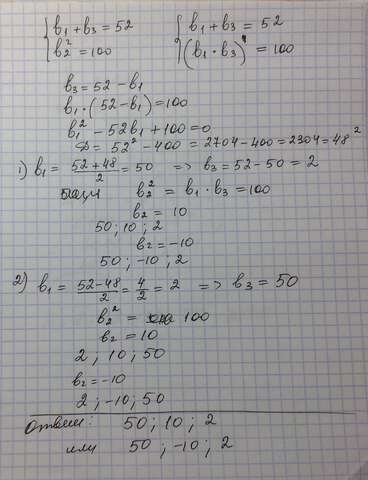 b₁ + b₃ = 52
b₂² = 100
b₁ + b₃ = 52
(b₁ · b₃) = 100
b₃ = 52 - b₁
b₁ · (52 - b₁) = 100
b₁² - 52b₁ + 100 = 0
D = 52² - 400 = 2704 - 400 = 2304 = 48²
1) b₁ = (52 + 48)/2 = 50 => b₃ = 52 - 50 = 2
b₂² = b₁ · b₃ = 100
b₂ = 10
50 ; 10 ; 2
b₂ = -10
50 ; -10 ; 2
2) b₁ = (52 - 48)/2 = 4/2 = 2 => b₃ = 50
b₂² = 100
b₂ = 10
2 ; 10 ; 50
b₂ = -10
2 ; -10 ; 50
Ответ: 50 ; 10 ; 2
или 50 ; -10 ; 2